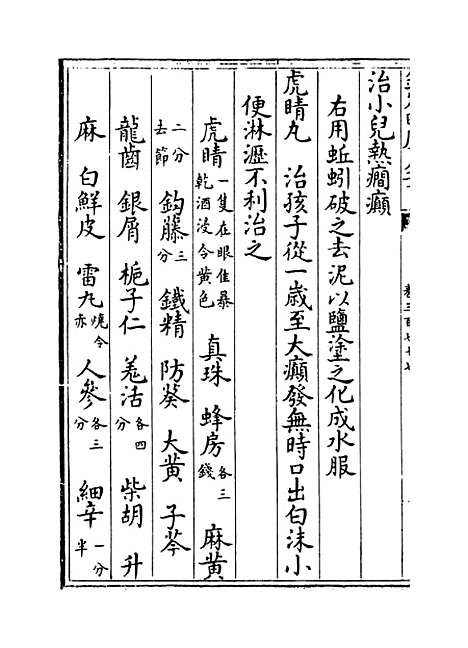 治小兒熱癎癲
右用蚯蚓破之去泥以鹽塗之化成水服
虎睛丸　治孩子從一歲至大癲發無時口出白沫小
便淋瀝不利治之
虎睛一隻在眼隹暴乾酒浸令黄色　真珠　蜂房各三錢　麻黄
二分去節　鈎藤三分　鐵精　防葵　大黄　子芩
龍齒　銀屑　梔子仁　羗活各四分　柴胡　升
麻　白鮮皮　雷丸燒令赤　人參各三分　細辛一分半
卷三百七十七